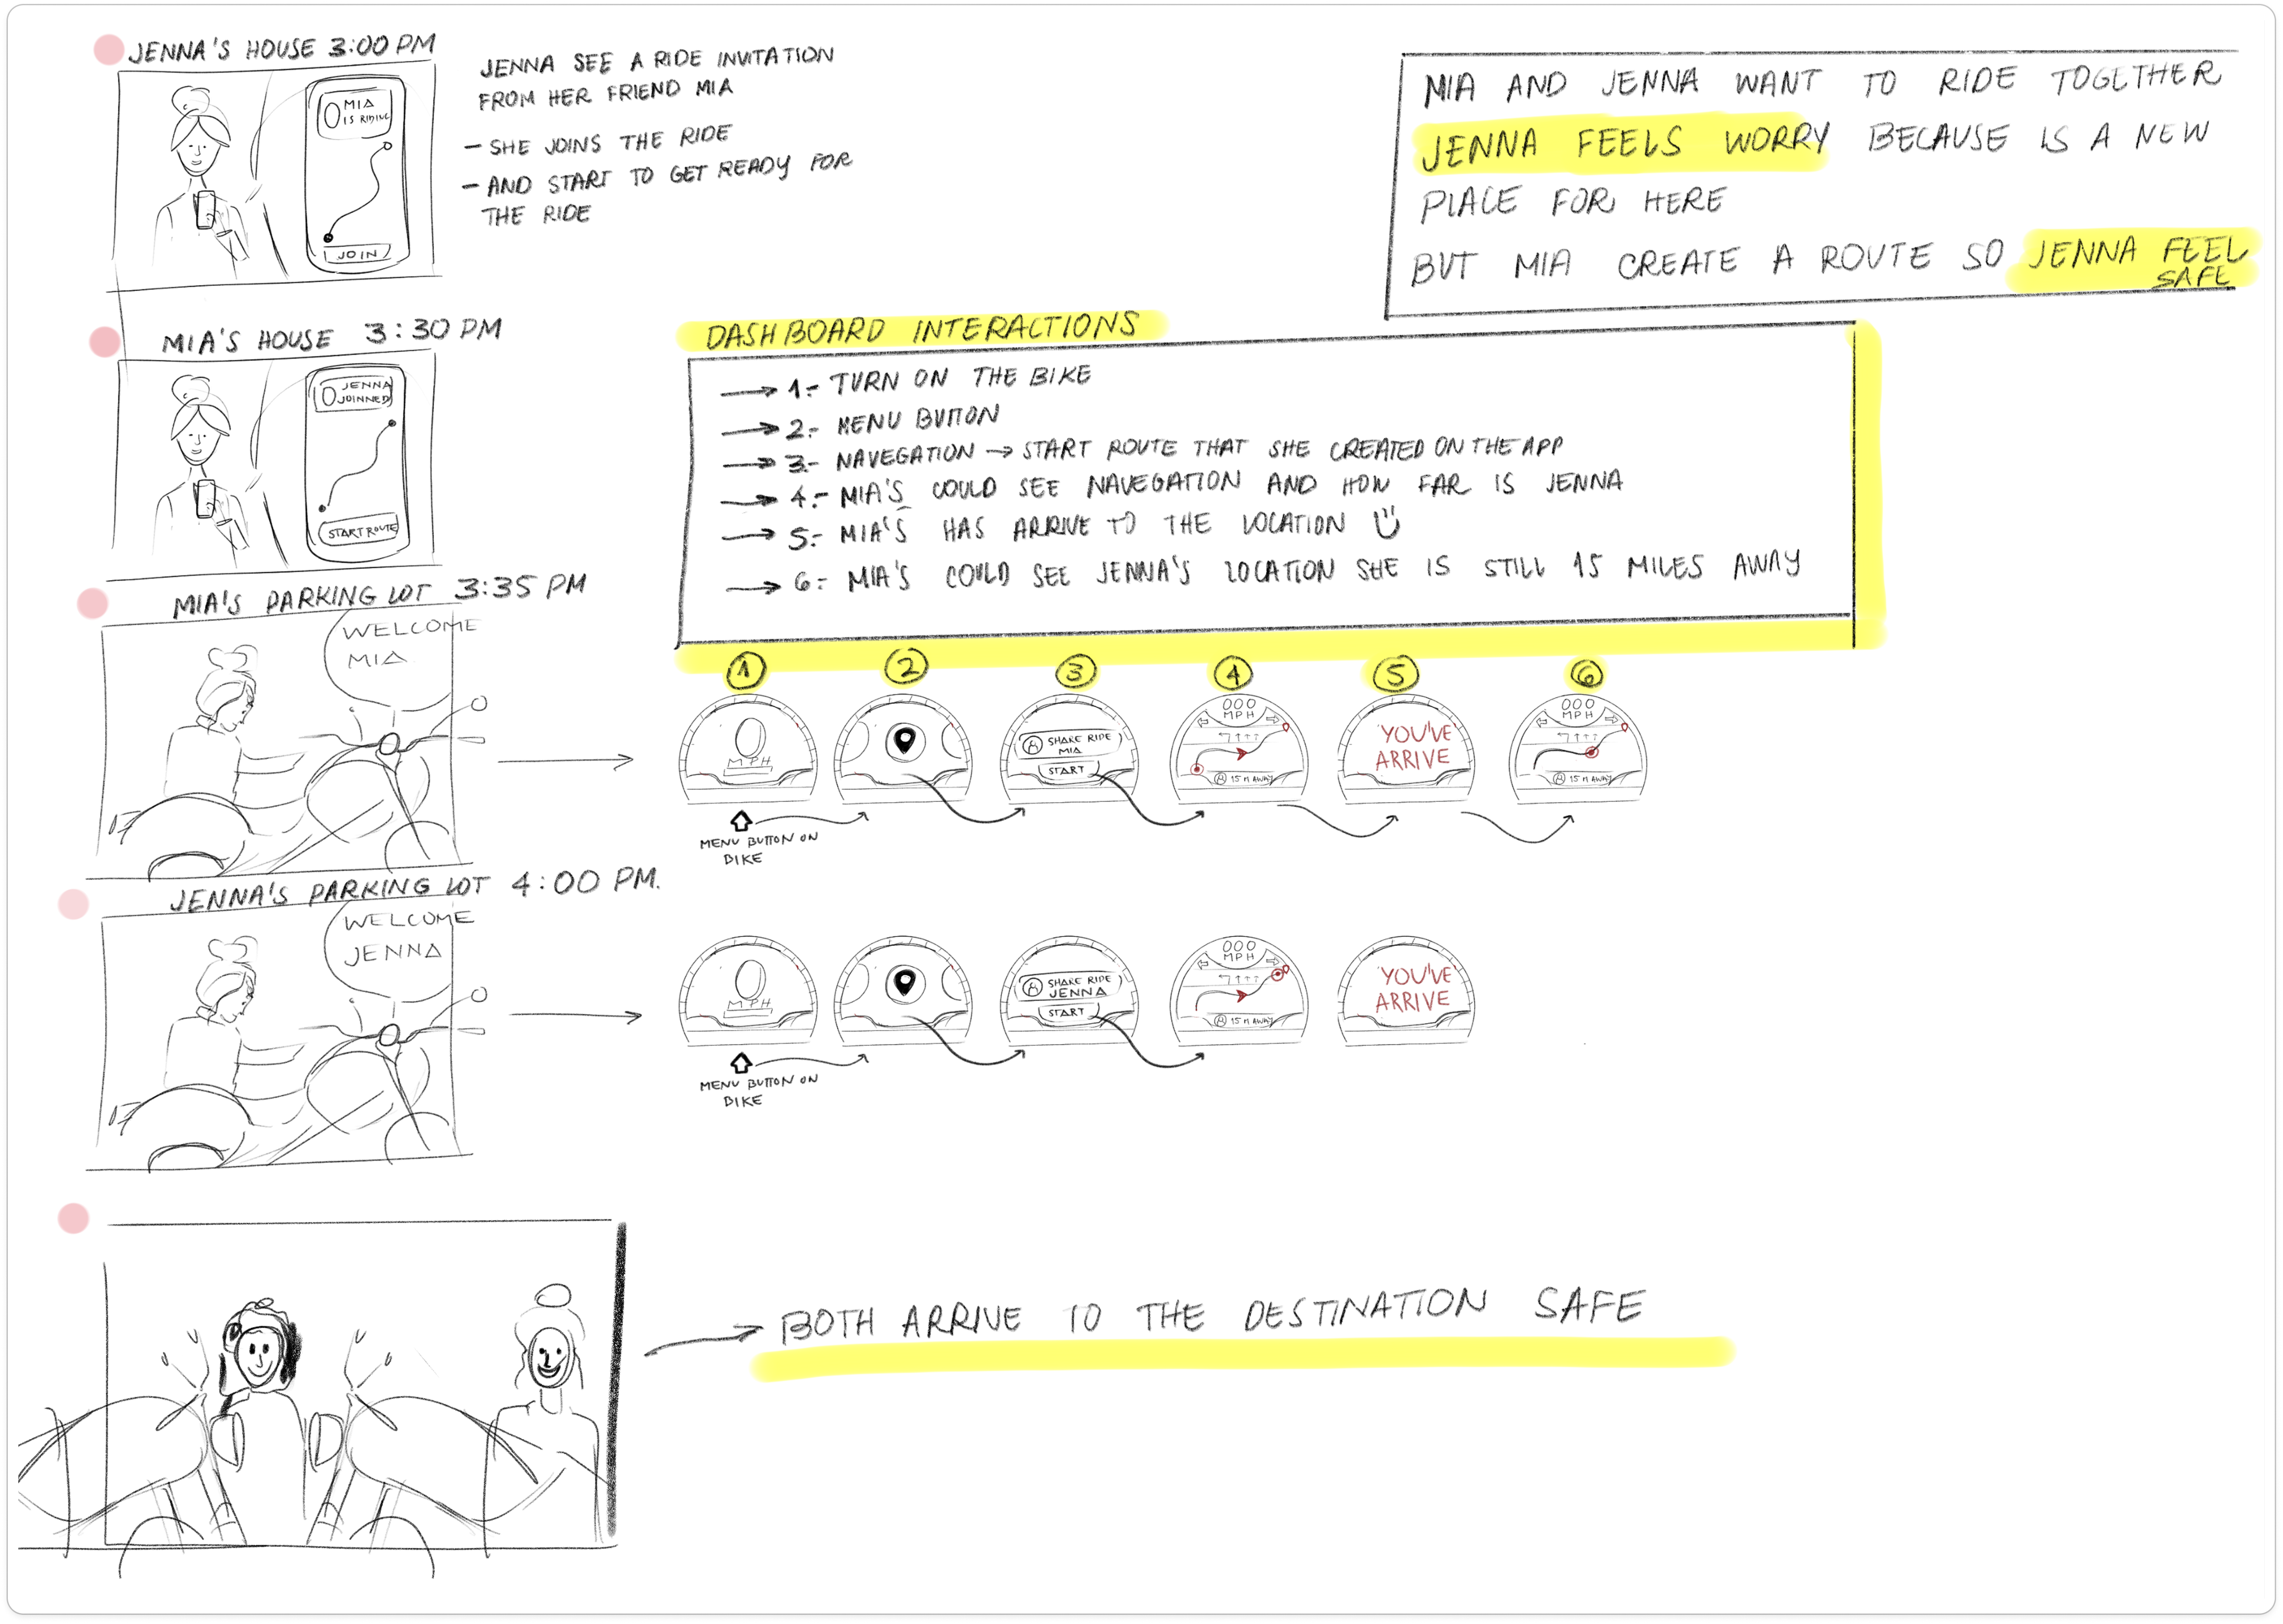 JENNA'S HOUSE 3:00 PM
MIA
IS RIDING
JOIN
JENNA SEE A RIDE INVITATION
FROM HER FRIEND MIA
- SHE JOINS THE RIDE
- AND START TO GET READY FOR
THE RIDE
MIA AND JENNA WANT TO RIDE TOGETHER
JENNA FEELS WORRY BECAUSE IS A NEW
PLACE FOR HERE
BUT MIA CREATE A ROUTE SO JENNA FEEL
SAFE
MIA'S HOUSE 3:30 PM
JENNA
JOINNED
START ROUTE
DASHBOARD INTERACTIONS
→ 1.- TURN ON THE BIKE
→ 2.- MENU BUTTON
→ 3.- NAVEGATION → START ROUTE THAT SHE CREATED ON THE APP
→ 4.- MIA'S COULD SEE NAVEGATION AND HOW FAR IS JENNA
→ 5.- MIA'S HAS ARRIVE TO THE LOCATION
→ 6.- MIA'S COULD SEE JENNA'S LOCATION SHE IS STILL 15 MILES AWAY
MIA'S PARKING LOT 3:35 PM
WELCOME
MIA
1
2
3
4
5
6
MPH
SHARE RIDE
MIA
START
000
MPH
15 M AWAY
YOU'VE
ARRIVE
000
MPH
15 M AWAY
MENU BUTTON ON
BIKE
JENNA'S PARKING LOT 4:00 PM.
WELCOME
JENNA
MPH
SHARE RIDE
JENNA
START
000
MPH
15 M AWAY
YOU'VE
ARRIVE
MENU BUTTON ON
BIKE
BOTH ARRIVE TO THE DESTINATION SAFE